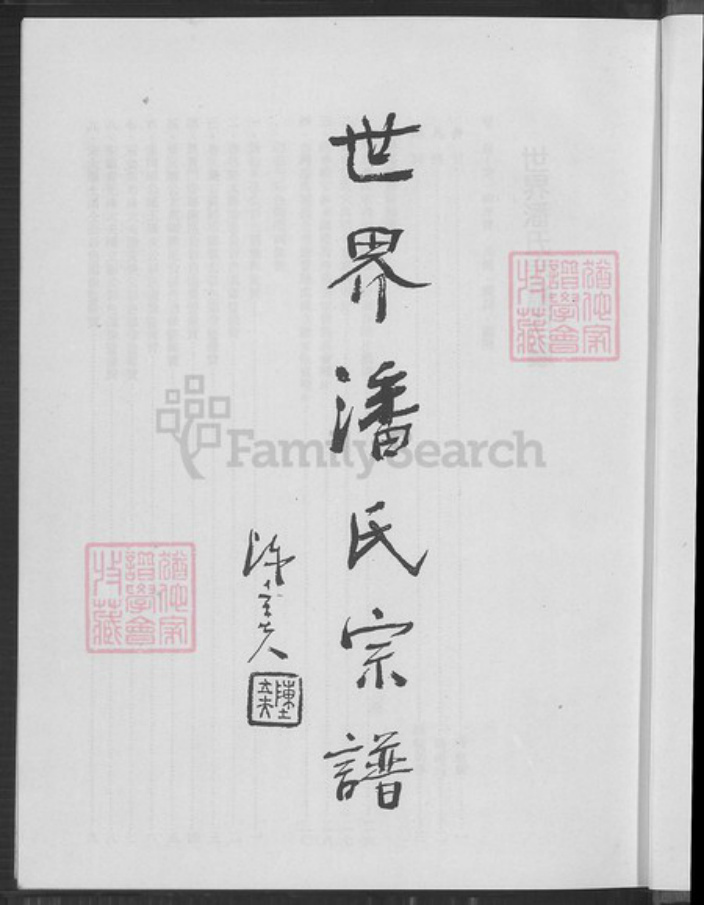 世界潘氏宗譜
陳立夫
陳立夫
猶他家
譜學會
收藏
猶他家
譜學會
收藏
FamilySearch